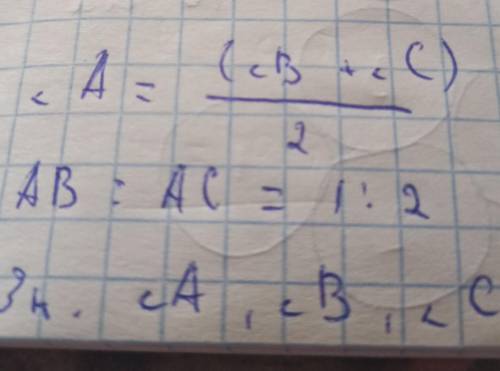 ∠A = (∠B + ∠C) / 2
AB : AC = 1 : 2
Зн. ∠A, ∠B, ∠C